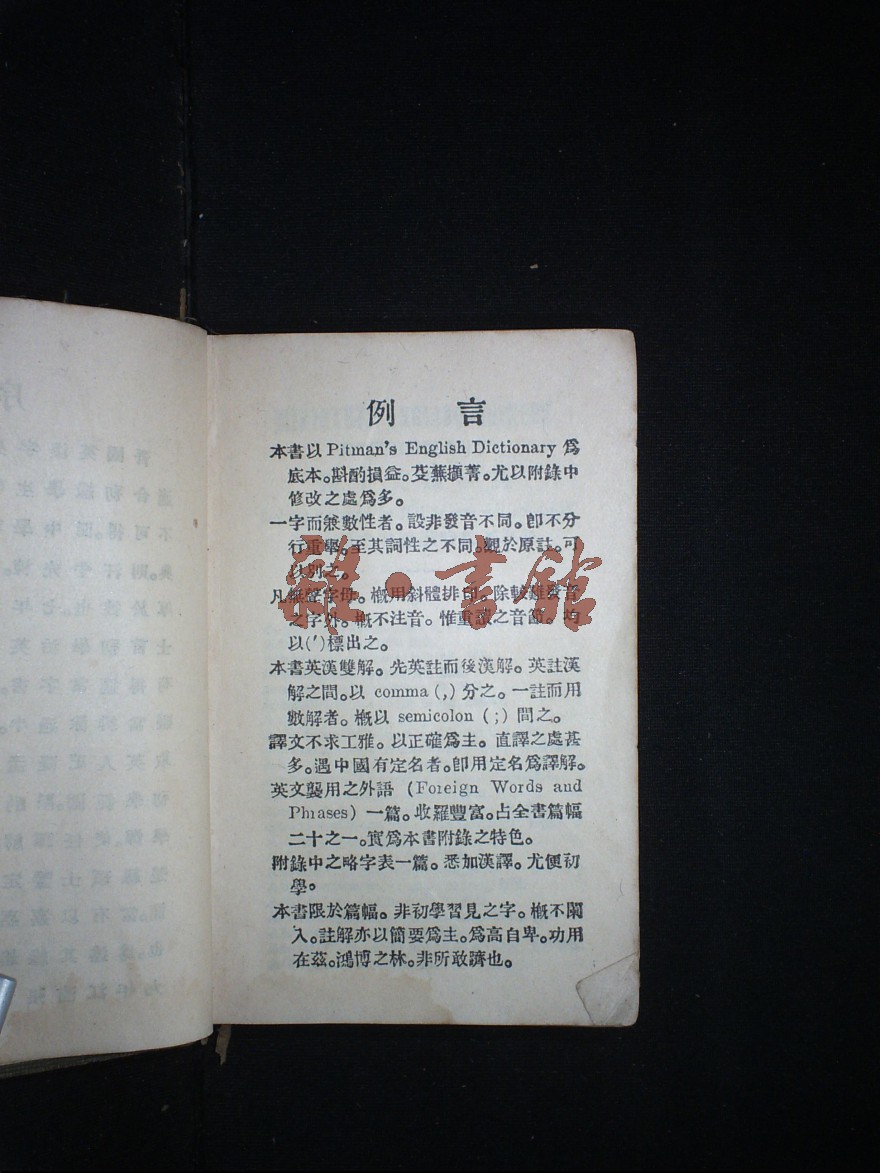 例言
本書以 Pitman's English Dictionary 爲
底本。斟酌損益。芟蕪擷菁。尤以附錄中
修改之處爲多。
一字而兼數性者。設非發音不同。卽不分
行重舉。至其詞性之不同。觀於原註。可
以別之。
凡無聲字母。槪用斜體排印。除較難發音
之字外。槪不注音。惟重讀之音節。均
以(′)標出之。
本書英漢雙解。先英註而後漢解。英註漢
解之間。以 comma (,) 分之。一註而用
數解者。槪以 semicolon (;) 間之。
譯文不求工雅。以正確爲主。直譯之處甚
多。遇中國有定名者。卽用定名爲譯解。
英文襲用之外語 (Foreign Words and
Phrases) 一篇。收羅豐富。占全書篇幅
二十之一。實爲本書附錄之特色。
附錄中之略字表一篇。悉加漢譯。尤便初
學。
本書限於篇幅。非初學習見之字。槪不闌
入。註解亦以簡要爲主。爲高自卑。功用
在茲。鴻博之林。非所敢躋也。
雜·書館